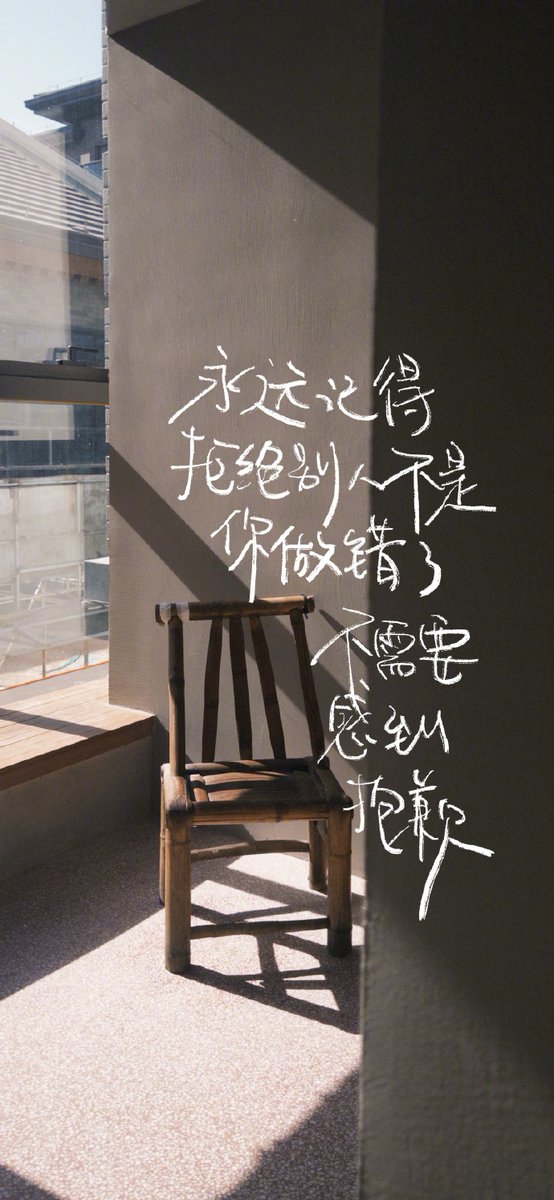 永远记得
拒绝别人不是
你做错了
不需要
感到
抱歉